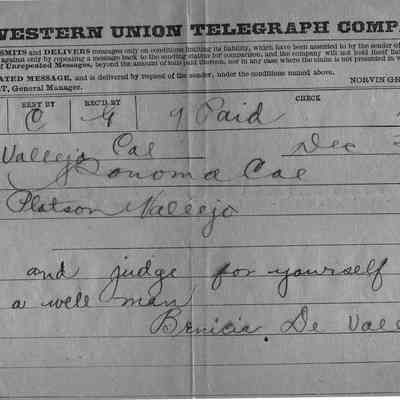 WESTERN UNION TELEGRAPH COMPA
SMITS and DELIVERS messages only on conditions limiting its liability, which have been assented to by the sender of
against only by repeating a message back to the sending station for comparison, and the company will not hold itself liab
of Unrepeated Messages, beyond the amount of tolls paid thereon, nor in any case where the claim is not presented in w
ATED MESSAGE, and is delivered by request of the sender, under the conditions named above.
T, General Manager. NORVIN GR
SENT BY REC'D BY CHECK
O G 9 Paid
Vallejo Cal Dec
Sonoma Cal
Platson Vallejo
and judge for yourself
a well man
Benicia De Vall